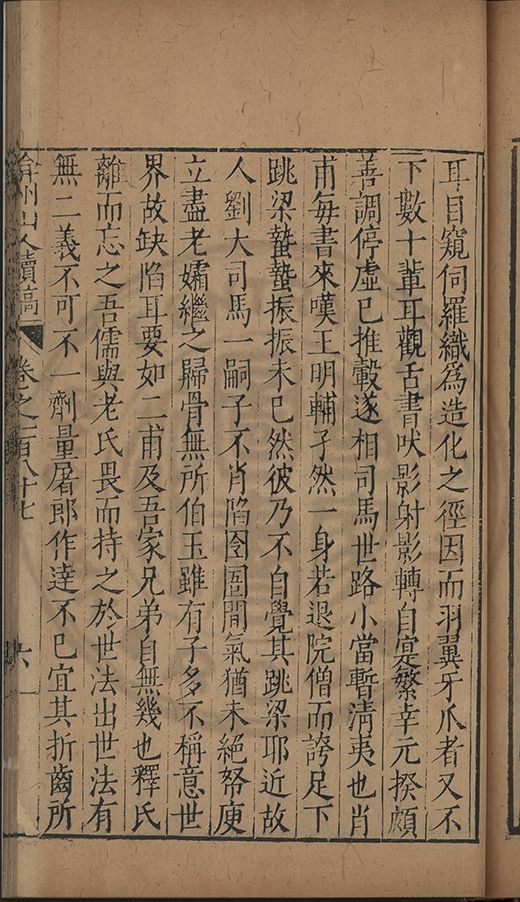 耳目窺伺羅織為造化之徑因而羽翼牙爪者又不
下數十輩耳觀舌書吠影射影轉自寔繁幸元揆頗
善調停虛已推轂遂相司馬世路小當暫淸夷也肖
甫每書來嘆王明輔孑然一身若退院僧而誇足下
跳梁蟄蟄振振未已然彼乃不自覺其跳梁耶近故
人劉大司馬一嗣子不肖陷囹圄間氣猶未絕帑庾
立盡老孀繼之歸骨無所伯玉雖有子多不稱意世
界故缺陷耳要如二甫及吾家兄弟自無幾也釋氏
離而忘之吾儒與老氏畏而持之於世法出世法有
無二義不可不一劑量屠郎作達不已宜其折齒所
弇州山人續稿 卷之一百八十七 六